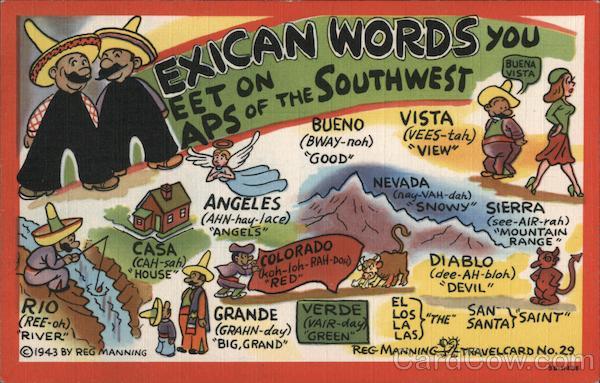 MEXICAN WORDS YOU
MEET ON
MAPS OF THE SOUTHWEST
BUENA
VISTA
BUENO
(BWAY-noh)
"GOOD"
VISTA
(VEES-tah)
"VIEW"
ANGELES
(AHN-hay-lace)
"ANGELS"
NEVADA
(nay-VAH-dah)
"SNOWY"
SIERRA
(see-AIR-rah)
"MOUNTAIN
RANGE"
CASA
(CAH-sah)
"HOUSE"
COLORADO
(koh-loh-RAH-doh)
"RED"
DIABLO
(dee-AH-bloh)
"DEVIL"
RIO
(REE-oh)
"RIVER"
GRANDE
(GRAHN-day)
"BIG, GRAND"
VERDE
(VAIR-day)
"GREEN"
EL
LOS
LA
LAS
"THE"
SAN
SANTA
"SAINT"
©1943 BY REG MANNING
REG MANNING TRAVELCARD No. 29
CardCow.com